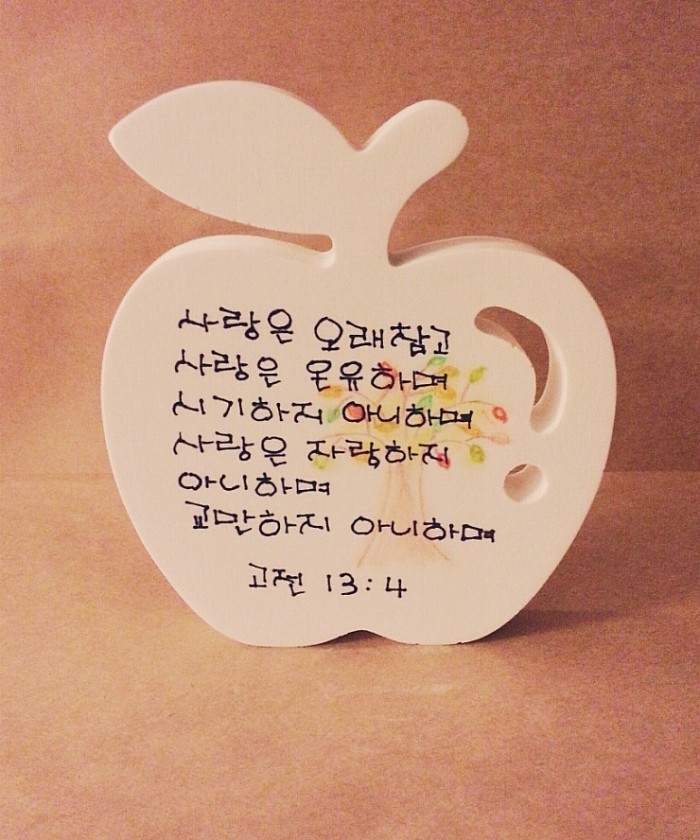 사랑은 오래참고
사랑은 온유하며
시기하지 아니하며
사랑은 자랑하지
아니하며
교만하지 아니하며
고전 13:4